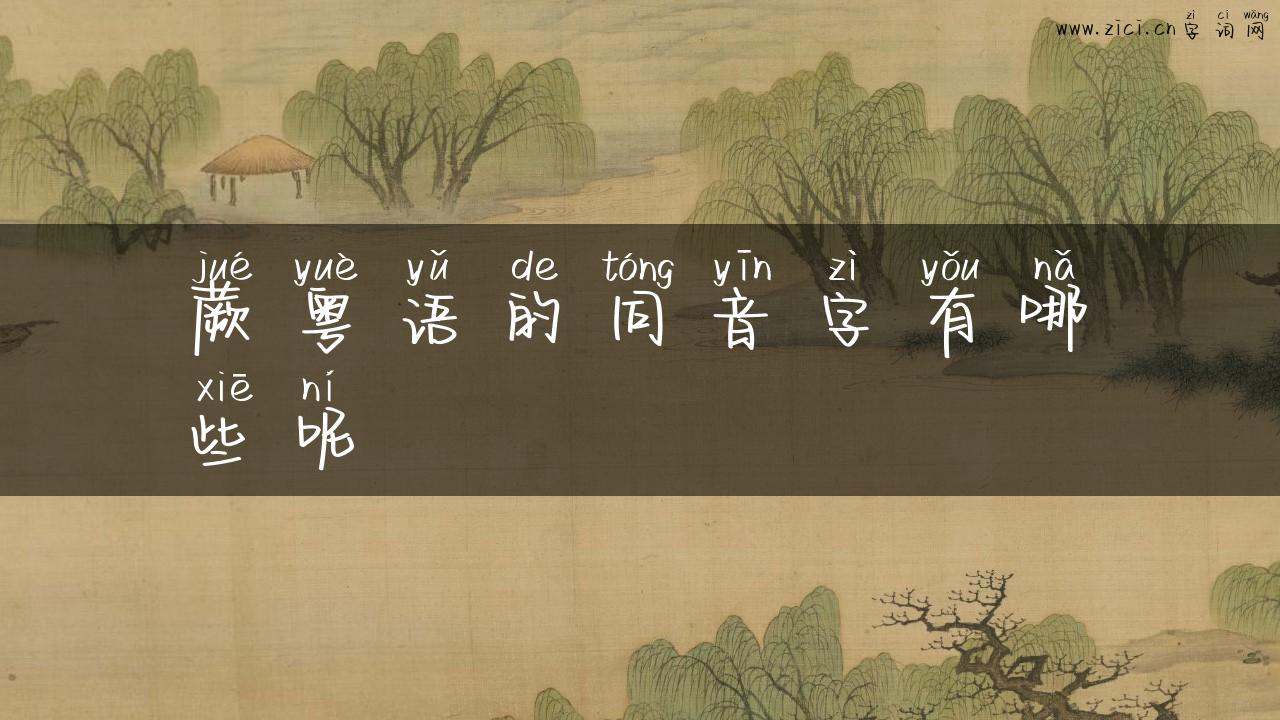 zì cí wǎng
www.zici.cn 字词网
jué yuè yǔ de tóng yīn zì yǒu nǎ
蕨粤语的同音字有哪
xiē ní
些呢